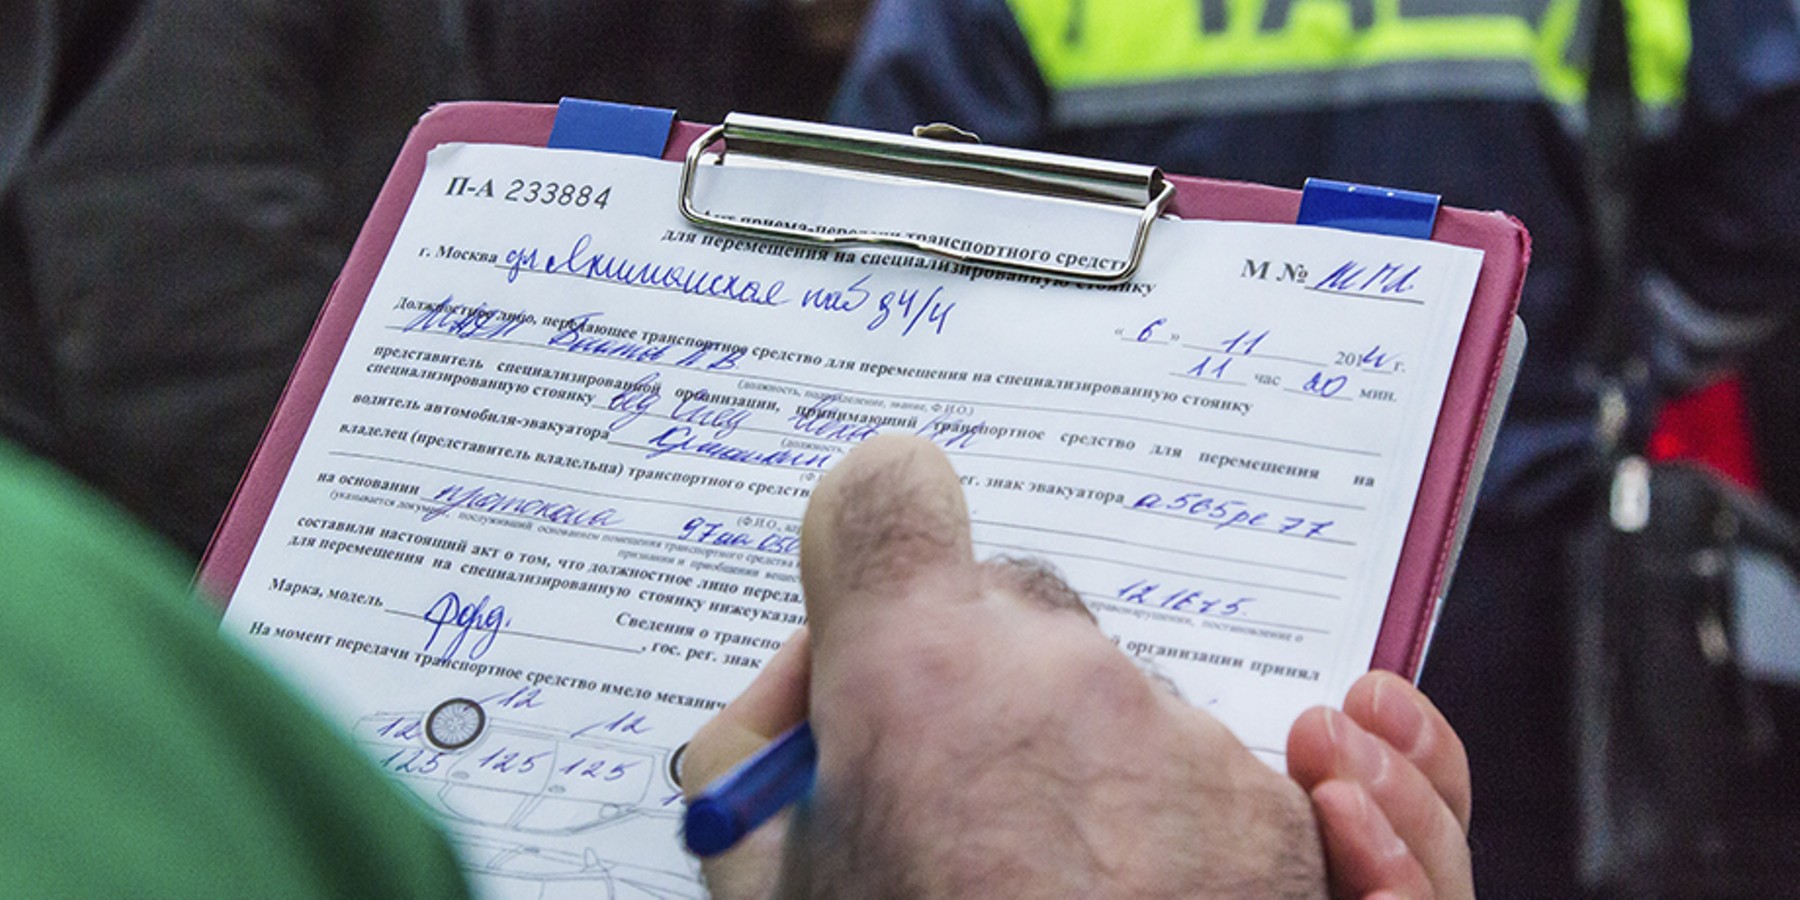 П-А 233884
Акт приема-передачи транспортного средст
для перемещения на специализированную стоянку
М №
г. Москва ул Якиманская наб д 4/4
« 6 » 11 2014 г.
11 час 20 мин.
Должностное лицо, передающее транспортное средство для перемещения на специализированную стоянку
(должность, подразделение, звание, Ф.И.О.)
представитель специализированной организации, принимающий транспортное средство для перемещения на
специализированную стоянку
(должность,
водитель автомобиля-эвакуатора ег. знак эвакуатора а565ре 77
владелец (представитель владельца) транспортного средств
на основании протокола 97
(указывается документ, послуживший основанием помещения транспортного средства
12.16 ч 5.
правонарушении, постановление о
признании и приобщении вещес
составили настоящий акт о том, что должностное лицо переда организации принял
для перемещения на специализированную стоянку нижеуказан
Сведения о транспо
Марка, модель Форд. , гос. рег. знак
На момент передачи транспортное средство имело механич
12
12 12
125 125 125